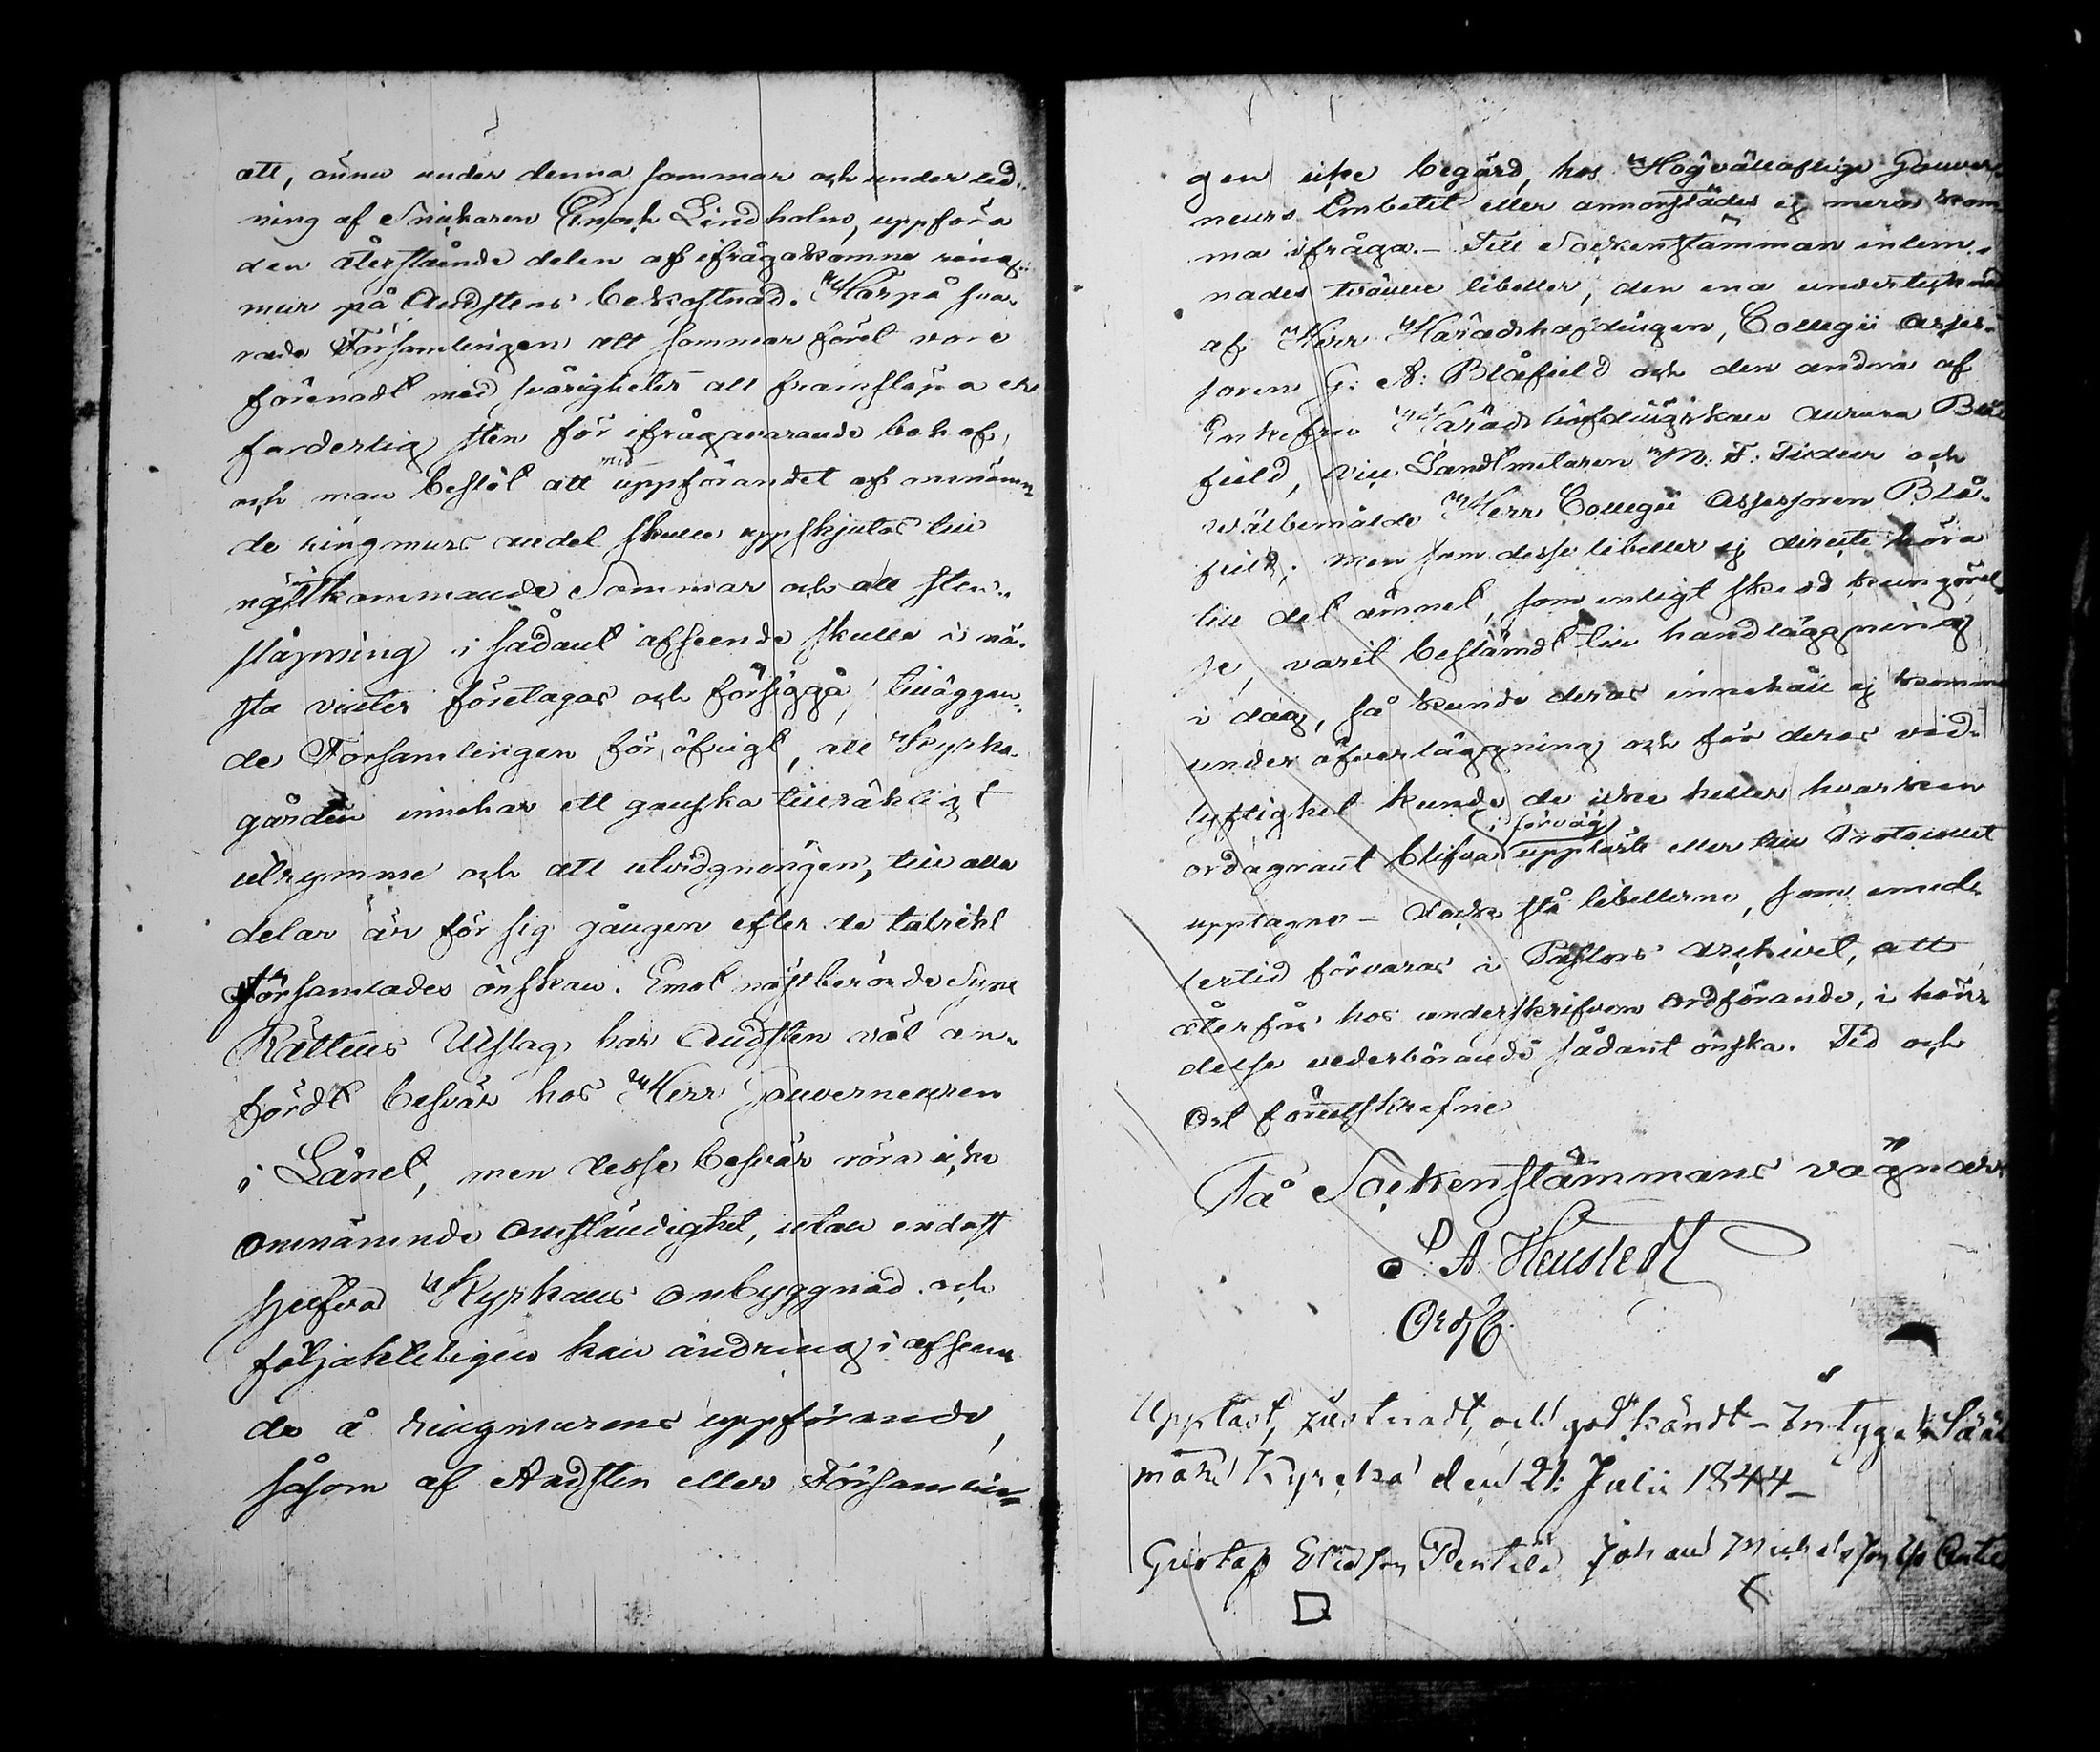 att, ännu under denna sommar och under led-
ning af Snickaren Enoch Lindholm, uppföra
den återstående delen af ifrågakomne ring-
mur på Audstens bekostnad. Härpå sva-
rade Församlingen att sommar förel vore
förenadt med svårigheter att framsläpa er
forderlig sten för ifrågavarande behof,
och man beslöt att med uppförandet af omnämn
de ringmurs andel skulle uppskjutas till
nästkommande Sommar och att sten-
släpning i sådant afseende skulle i nä-
sta vinter företagas och försiggå, tilläggan-
de Församlingen för öfrigt, att Kyrko-
gården innehar ett ganska tillräkligt
utrymme och att utvidgningen, till alla
delar är för sig gången efter de talrikt
Församlades önskan. Emot nästberörde Syne
Rättens Utslag har Audsten väl an-
fördt besvär hos Herr Gouverneuren
i Länet, men desse besvär röra icke
omnämnde omständighet, utan endast
sjelfva Kyrkans ombyggnad och
följakteligen kan ändring i afseen
de å ringmurens uppförande,
såsom af Audsten eller Församlin-
gen icke begärd, hos Högvällofliga Gouver-
neurs Embetet eller annorstädes ej mera kom
ma ifråga. - Till Sockenstämman inlem-
nades tvänne libeller, den ena undertecknad
af Herr Häradshöfdingen, Collegii Asses-
soren G. A: Blåfield och den andra af
Enkefru Häradshöfdingskan Aurora Blå
field, Vice Landtmätaren M. F. Tideer och
Wälbemälde Herr Collegii Assessoren Blå-
field; men som desse libeller ej directe höra
till det ämnet, som enligt skedd kungörel
se, varit bestämdt till handläggning
i dag, så kunde deras innehåll ej komma
under öfverläggning och för deras vid-
lyftighet kunde de icke heller hvarken
ordagrannt blifva i förväg uppläste eller till Protocollet
upptagne - dock stå libellerne, som emed-
lertid förvaras i Pastors Archivet, att
återfås hos underskrifven Ordförande, i hän-
delse vederbörande sådant önska. Tid och
Ort förutskrefne
På Sockenstämmans vägnar
A. Heusledt
Ordf.
Uppläst, justeradt, och godkändt - Intyga Sääx
mäki Kyrcka den 21: Julii 1844 -
Gustaf Pentilä Johan Michelsson Yli Antti